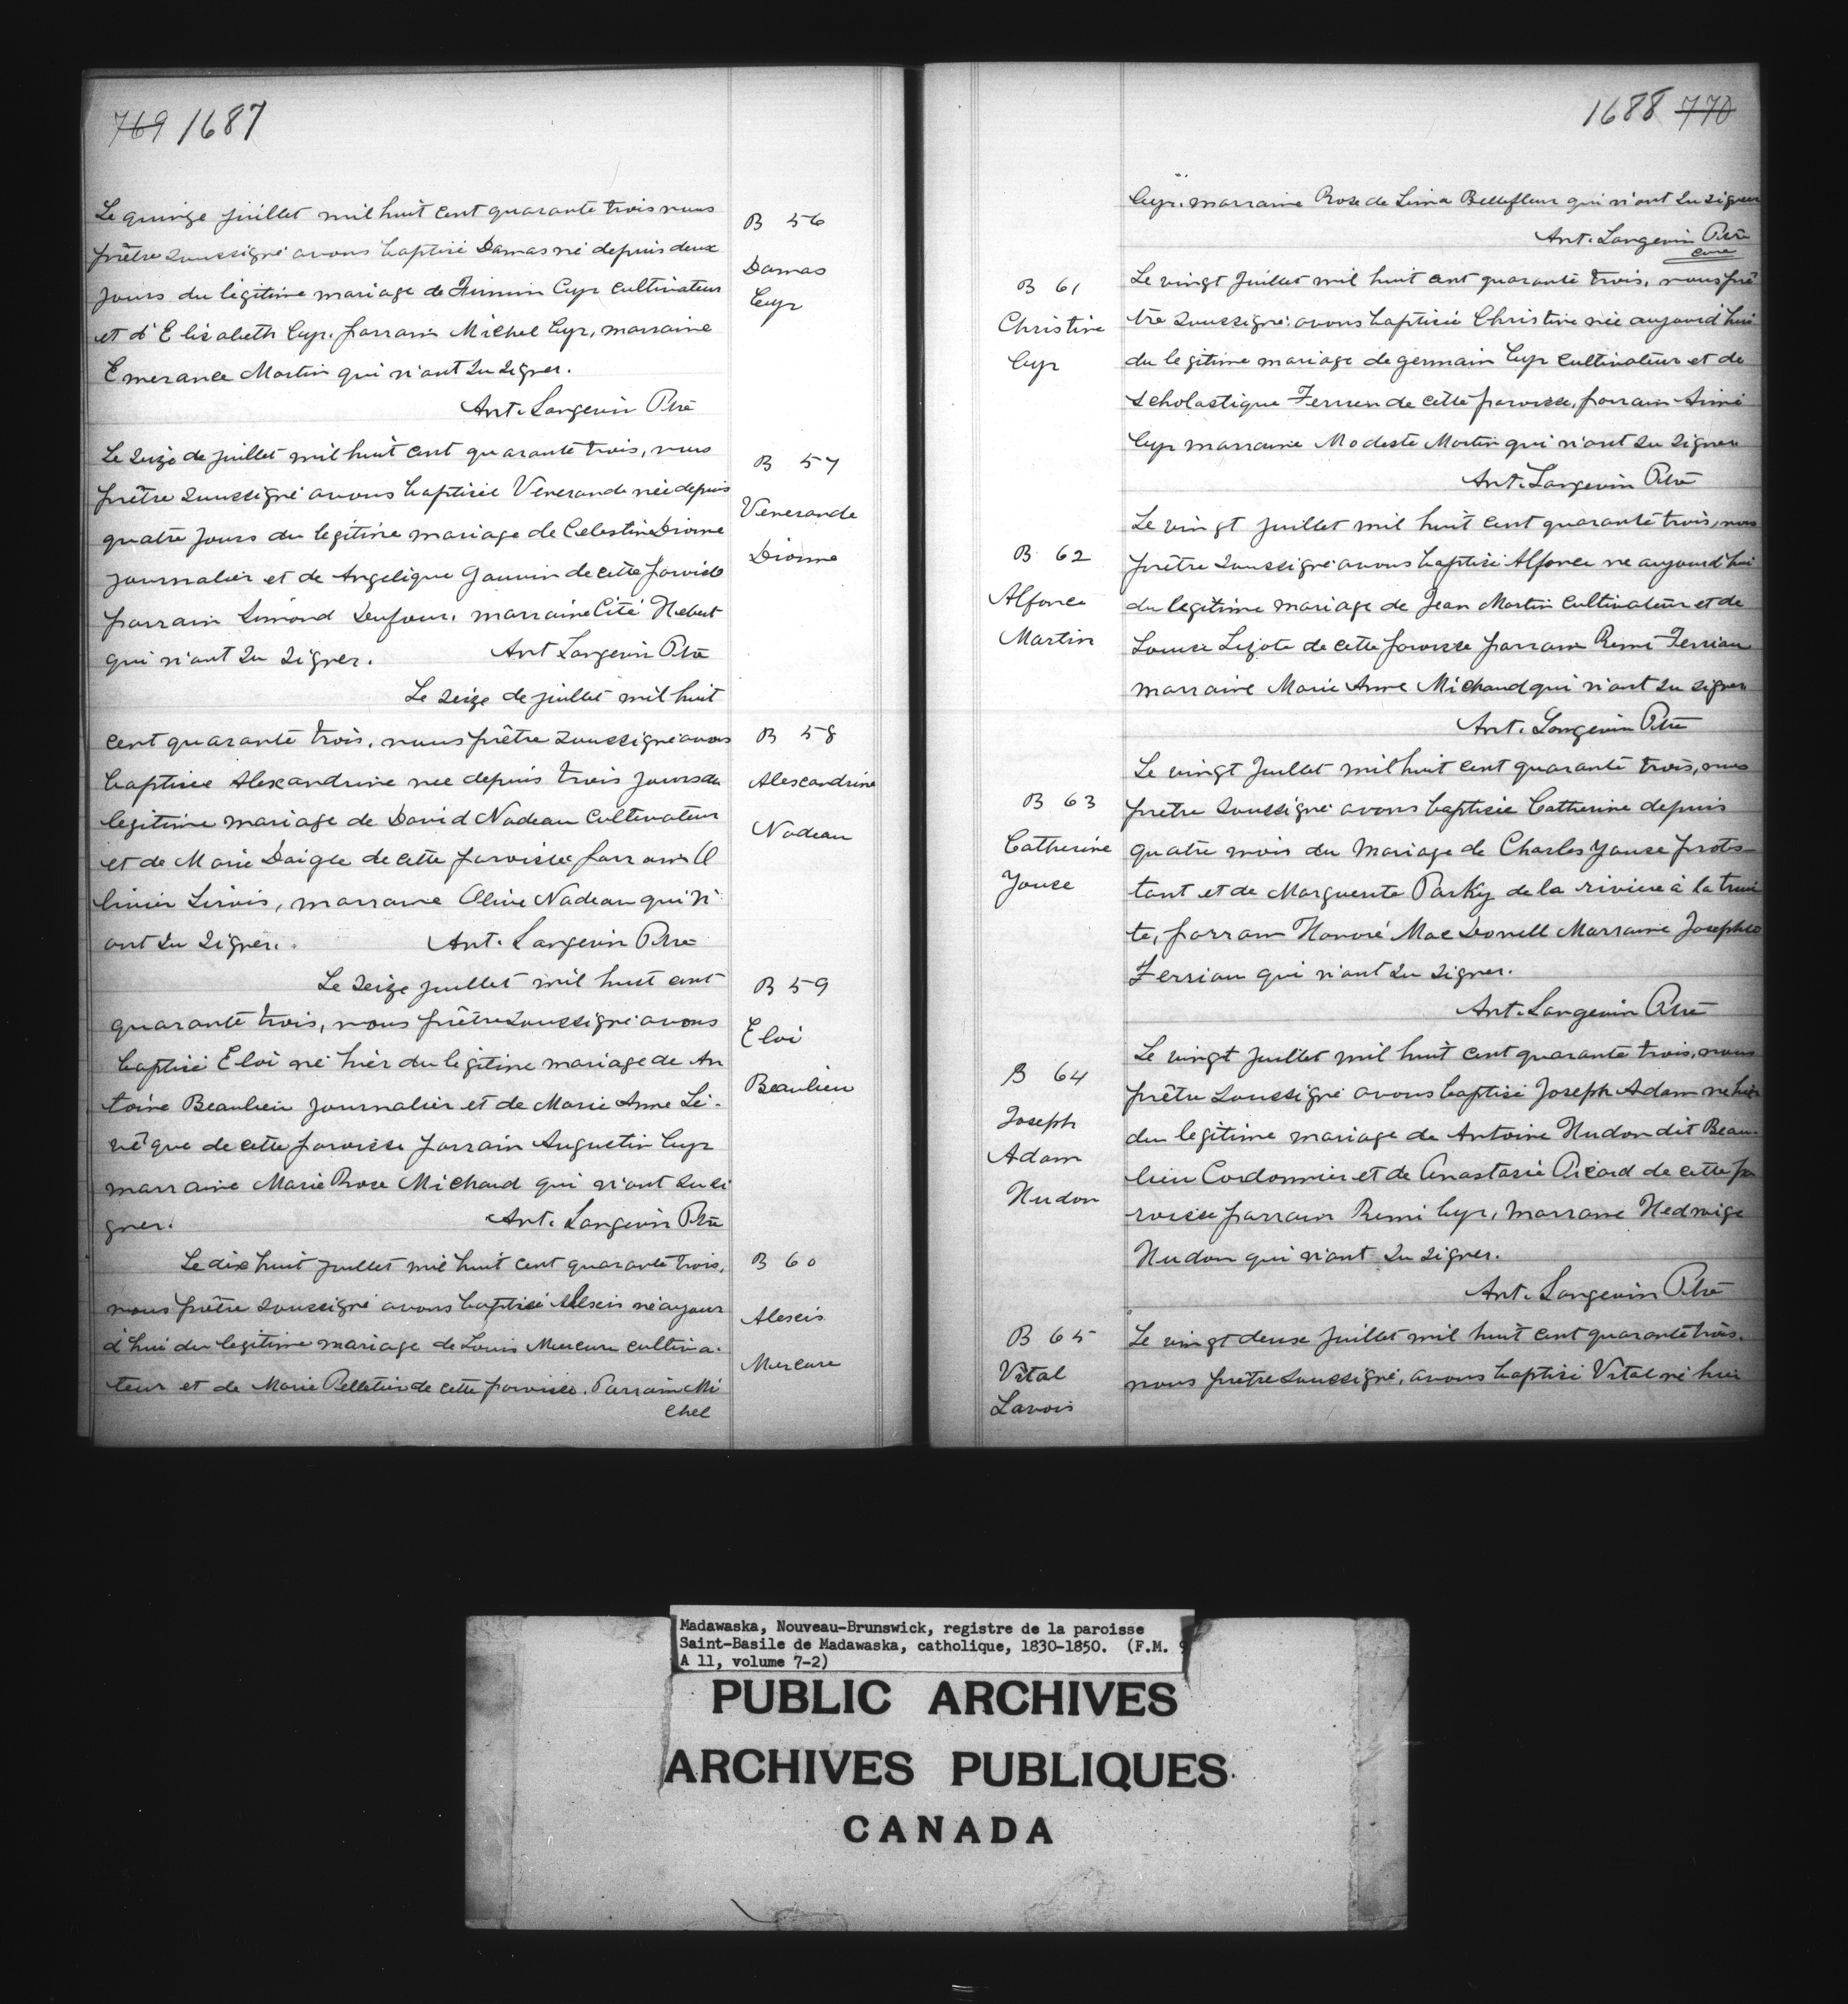 769 1687
Le quinze juillet mil huit cent quarante trois nous
prêtre soussigné avons baptisé Damas né depuis deux
jours du légitime mariage de Firmin Cyr cultivateur
et d'Elisabeth Cyr. parrain Michel Cyr, marraine
Emerance Martin qui n'ont su signer.
Ant. Langevin Ptre
B 56
Damas
Cyr
Le seize de juillet mil huit cent quarante trois, nous
prêtre soussigné avons baptisée Vénérande née depuis
quatre jours du legitime mariage de Celestin Dionne
journalier et de Angelique Gauvin de cette paroisse
parrain Simond Dufour, marraine Cité Hebert
qui n'ont su signer. Ant Langevin Ptre
B 57
Vénérande
Dionne
Le seize de juillet mil huit
cent quarante trois, nous prêtre soussigné avons
baptisée Alexandrine nee depuis trois jours du
legitime mariage de David Nadeau cultivateur
et de Marie Daigle de cette paroisse parrain O
livier Sirois, marraine Olive Nadeau qui n'
ont su signer. Ant. Langevin Ptre
B 58
Alexandrine
Nadeau
Le seize juillet mil huit cent
quarante trois, nous prêtre soussigné avons
baptisé Eloi né hier du légitime mariage de An
toine Beaulieu journalier et de Marie Anne Lé-
vêque de cette paroisse parrain Augustin Cyr
marraine Marie Rose Michaud qui n'ont su si
gner. Ant. Langevin Ptre
B 59
Eloi
Beaulieu
Le dix huit juillet mil huit cent quarante trois,
nous prêtre soussigné avons baptisé Alexis né aujour
d'hui du legitime mariage de Louis Mercure cultiva-
teur et de Marie Pelletier de cette paroisse. Parrain Mi
chel
B 60
Alexis
Mercure
1688 770
Cyr. marraine Rose de Lima Bellefleur qui n'ont su signer
Ant. Langevin Ptre
cure
B 61
Christine
Cyr
Le vingt juillet mil huit cent quarante trois, nous prê
tre soussigné avons baptisée Christine née aujourd'hui
du legitime mariage de germain Cyr cultivateur et de
scholastique Terrien de cette paroisse, parrain Aimé
Cyr marraine Modeste Martin qui n'ont su signer
Ant. Langevin Ptre
B 62
Alfonce
Martin
Le vingt juillet mil huit cent quarante trois, nous
prêtre soussigné avons baptisé Alfonce ne aujourd'hui
du legitime mariage de Jean Martin cultivateur et de
Louise Lizote de cette paroisse parrain Remi Terriau
marraine Marie Anne Michaud qui n'ont su signer
Ant. Langevin Ptre
B 63
Catherine
Youse
Le vingt juillet mil huit cent quarante trois, nous
prêtre soussigné avons baptisée Catherine depuis
quatre mois du mariage de Charles Youse prots-
tant et de Marguerite Parky de la riviere à la trui
te, parrain Honoré Mac Donnell Marraine Josephte
Terriau qui n'ont su signer.
Ant. Langevin Ptre
B 64
Joseph
Adam
Nudon
Le vingt juillet mil huit cent quarante trois, nous
prêtre soussigné avons baptisé Joseph Adam ne hier
du legitime mariage de Antoine Nudon dit Beau-
lieu Cordonnier et de Anastasie Picard de cette pa
roisse parrain Remi Cyr, Marraine Hedwige
Nudon qui n'ont su signer.
Ant. Langevin Ptre
B 65
Vital
Lavois
Le vingt deux juillet mil huit cent quarante trois.
nous prêtre soussigné, avons baptisé Vital né hier
Madawaska, Nouveau-Brunswick, registre de la paroisse
Saint-Basile de Madawaska, catholique, 1830-1850. (F.M. 9
A 11, volume 7-2)
PUBLIC ARCHIVES
ARCHIVES PUBLIQUES
CANADA